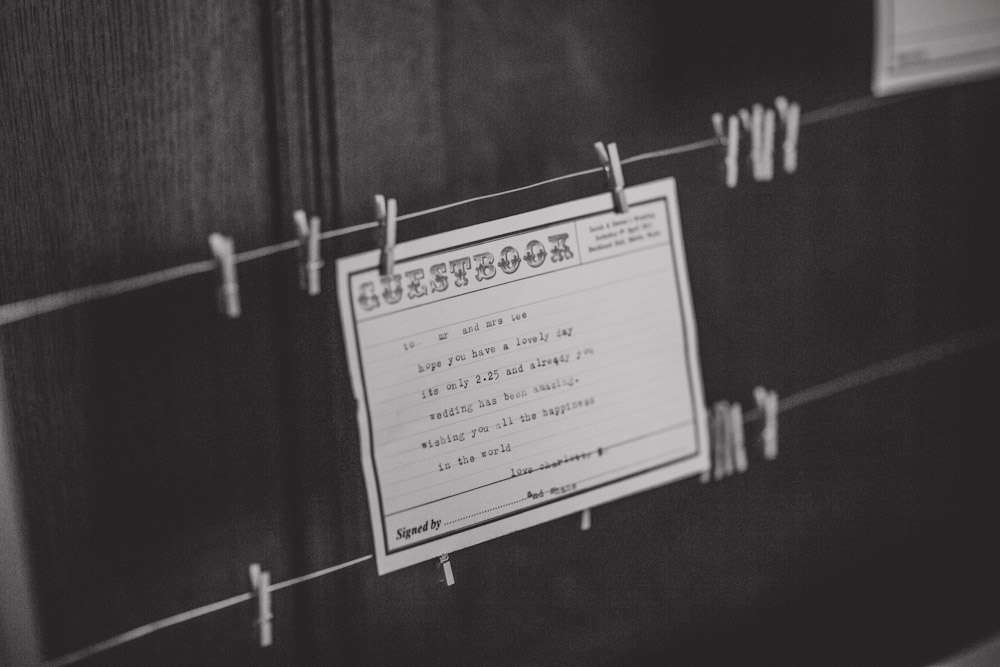 GUESTBOOK
Wedding
to mr and mrs tee
hope you have a lovely day
its only 2.25 and already you
wedding has been amazing.
wishing you all the happiness
in the world
love charlotte
and
Signed by